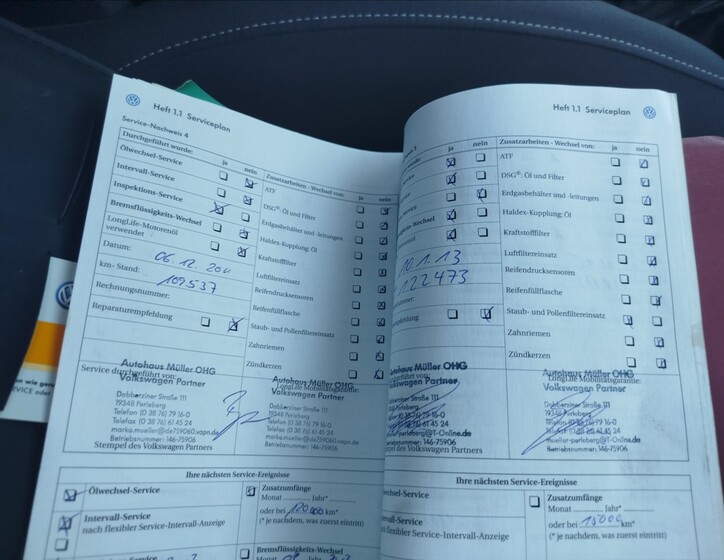 Heft 1.1 Serviceplan
Service-Nachweis 4
Durchgeführt wurde: ja nein
Ölwechsel-Service
Intervall-Service
Inspektions-Service
Bremsflüssigkeits-Wechsel
LongLife-Motorenöl
verwendet
Datum:
06.12.
km-Stand:
109537
Rechnungsnummer:
Reparaturempfehlung
Zusatzarbeiten - Wechsel von: ja nein
ATF
DSG®: Öl und Filter
Erdgasbehälter und -leitungen
Haldex-Kupplung: Öl
Kraftstofffilter
Luftfiltereinsatz
Reifendrucksensoren
Reifenfüllflasche
Staub- und Pollenfiltereinsatz
Zahnriemen
Zündkerzen
Service durchgeführt von:
Autohaus Müller OHG
Volkswagen Partner
Dobberziner Straße 111
19348 Perleberg
Telefon (0 38 76) 79 16-0
Telefax (0 38 76) 61 45 24
Betriebsnummer: 146-75906
Stempel des Volkswagen Partners
Autohaus Müller OHG
Volkswagen Partner
Dobberziner Straße 111
19348 Perleberg
Telefon (0 38 76) 79 16-0
Telefax (0 38 76) 61 45 24
Betriebsnummer: 146-75906
Ihre nächsten Service-Ereignisse
Ölwechsel-Service
Intervall-Service
nach flexibler Service-Intervall-Anzeige
Zusatzumfänge
Monat Jahr*
oder bei 120000 km*
(* je nachdem, was zuerst eintritt)
Bremsflüssigkeits-Wechsel
Heft 1.1 Serviceplan
ja nein
Wechsel
10.1.13
122473
Zusatzarbeiten - Wechsel von: ja nein
ATF
DSG®: Öl und Filter
Erdgasbehälter und -leitungen
Haldex-Kupplung: Öl
Kraftstofffilter
Luftfiltereinsatz
Reifendrucksensoren
Reifenfüllflasche
Staub- und Pollenfiltereinsatz
Zahnriemen
Zündkerzen
Autohaus Müller OHG
Volkswagen Partner
Dobberziner Straße 111
19348 Perleberg
des Volkswagen Partners
Autohaus Müller OHG
LongLife Mobilitätsgarantie:
Volkswagen Partner
Dobberziner Straße 111
19348 Perleberg
Betriebsnummer: 146-75906
Ihre nächsten Service-Ereignisse
Intervall-Service
nach flexibler Service-Intervall-Anzeige
Zusatzumfänge
Monat Jahr*
oder bei km*
(* je nachdem, was zuerst eintritt)